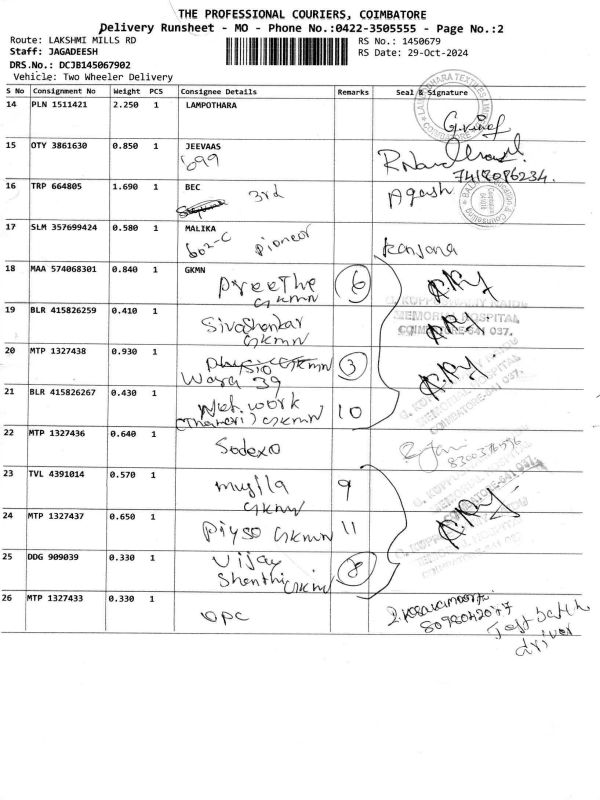 THE PROFESSIONAL COURIERS, COIMBATORE
Delivery Runsheet - MO - Phone No.:0422-3505555 - Page No.:2
Route: LAKSHMI MILLS RD
RS No.: 1450679
Staff: JAGADEESH
RS Date: 29-Oct-2024
DRS.No.: DCJB145067902
Vehicle: Two Wheeler Delivery
S No Consignment No Weight PCS Consignee Details Remarks Seal & Signature
14 PLN 1511421 2.250 1 LAMPOTHARA
COIMBATORE
15 OTY 3861630 0.850 1 JEEVAAS
699
7418086234
16 TRP 664805 1.690 1 BEC
3rd Agash
17 SLM 357699424 0.580 1 MALIKA
602-C pioneer Ranjana
18 MAA 574068301 0.840 1 GKMN
Preethe 6
GKMN
19 BLR 415826259 0.410 1
Sivashankar
GKMN
MEMORIAL HOSPITAL
COIMBATORE-641 037.
20 MTP 1327438 0.930 1
GKMN 3
Ward 39
21 BLR 415826267 0.430 1
Net work 10
GKMN
22 MTP 1327436 0.640 1
Sodexo
8300376596
23 TVL 4391014 0.570 1
9
GKMN
24 MTP 1327437 0.650 1
GKMN 11
25 DDG 909039 0.330 1
Vijay 8
Shanthi GKMN
26 MTP 1327433 0.330 1
OPC
driver